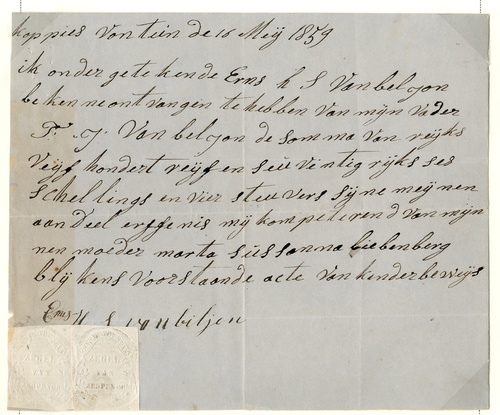 koppies vontein de 16 Meij 1859
ik onder getekende Erns h S Van belgon
bekenne ontvangen te hebben Van mijn Vader
F. J. Van belgon de somma van reijks
Veijf hondert veijf en seuventig rijks ses
schellings en vier stuuvers sijne meijnen
aandeel erfgenis mij kompeterend van mijn
nen moeder marta sussanna liebenberg
blijkens voorstaande acte van kenderbeweijs
Erns H S van biljon